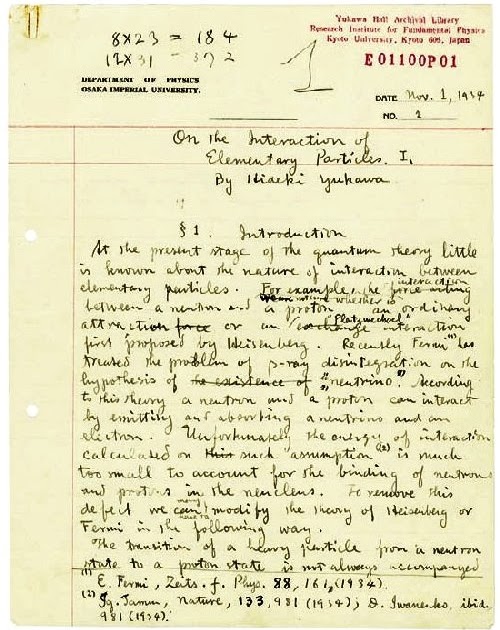 Yukawa Hall Archival Library
Research Institute for Fundamental Physics
Kyoto University, Kyoto 606, Japan
E01100P01
8 x 23 = 184
12 x 31 = 372
1
DEPARTMENT OF PHYSICS
OSAKA IMPERIAL UNIVERSITY.
DATE Nov. 1, 1934
NO. 1
On the Interaction of
Elementary Particles. I.
By Hideki Yukawa
§ 1. Introduction
At the present stage of the quantum theory little
is known about the nature of interaction between
elementary particles. For example, the force acting interaction
between a neutron and a proton whether is an ordinary
attraction force or an exchange "Platzwechsel" interaction
first proposed by Heisenberg. Recently Fermi (1) has
treated the problem of β-ray disintegration on the
hypothesis of the existence of "neutrino". According
to this theory a neutron and a proton can interact
by emitting and absorbing a neutrino and an
electron. Unfortunately the energy of interaction
calculated on this such assumption (2) is much
too small to account for the binding of neutrons
and protons in the nucleus. To remove this
defect we can modify the theory of Heisenberg or
Fermi in the following way.
The transition of a heavy particle from a neutron
state to a proton state is not always accompanied
(1) E. Fermi, Zeits. f. Phys. 88, 161, (1934).
(2) Ig. Tamm, Nature, 133, 981 (1934); D. Iwanenko, ibid.
981 (1934).